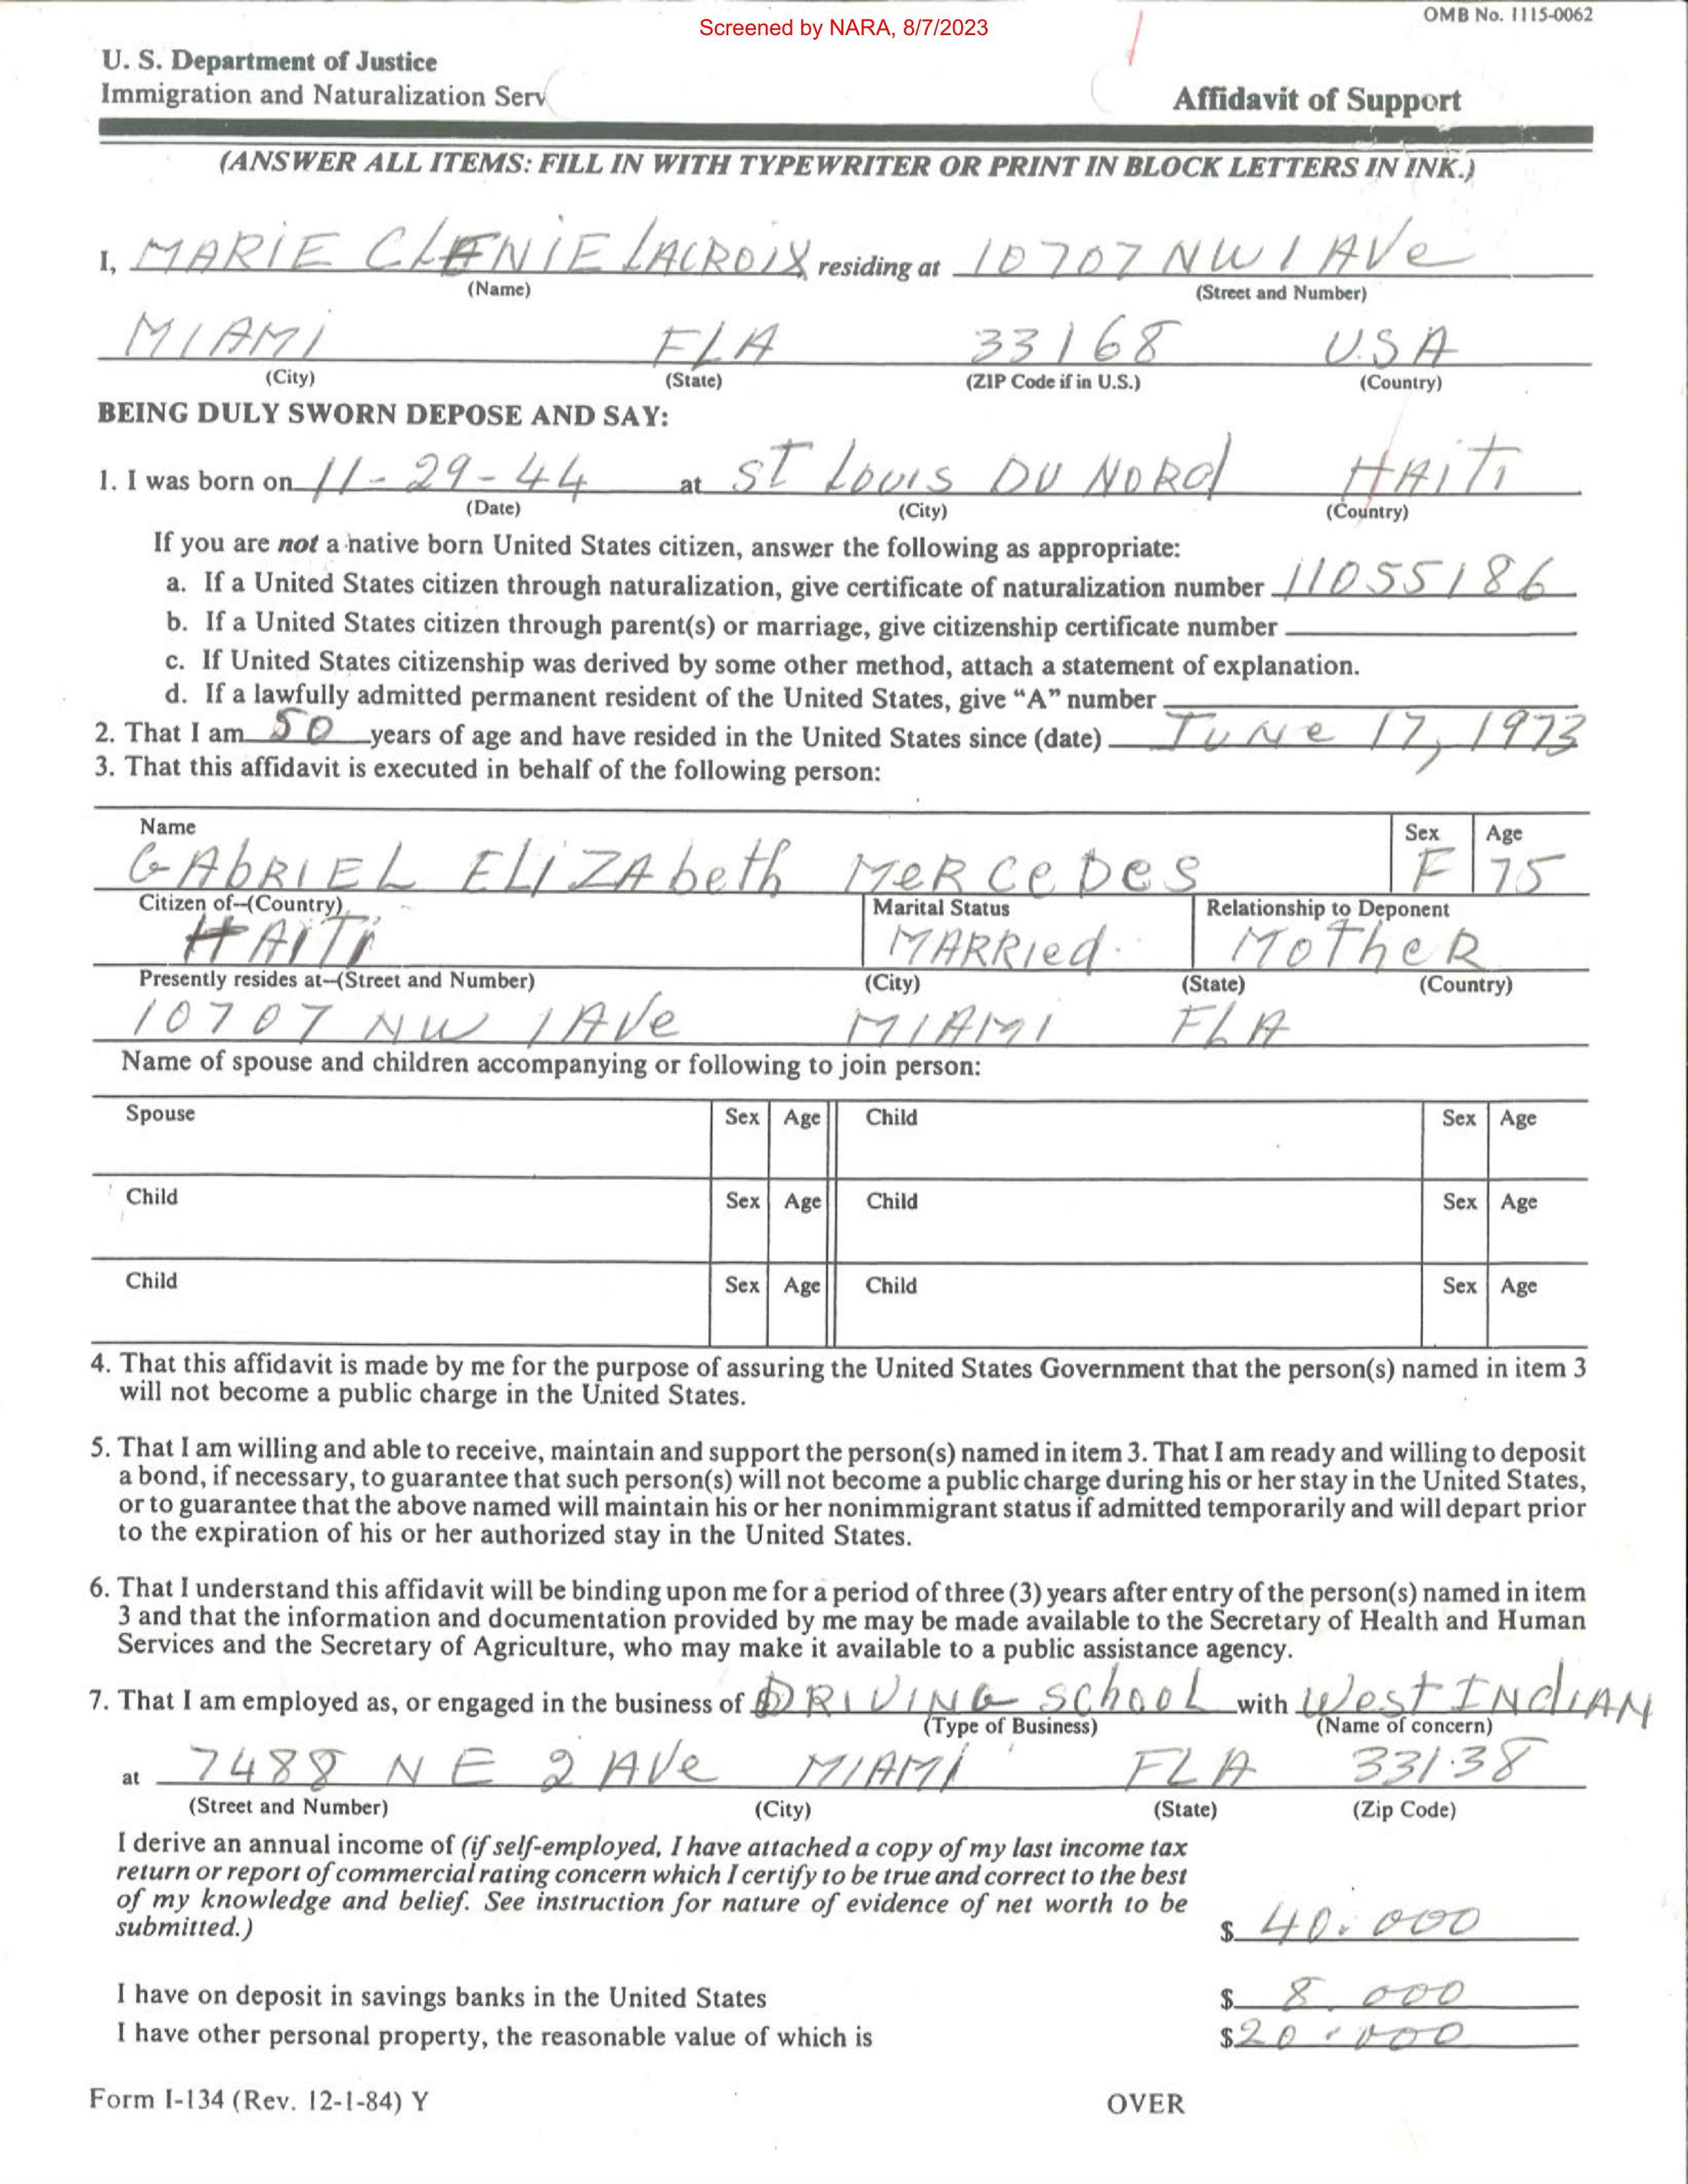 Screened by NARA, 8/7/2023
OMB No. 1115-0062
U. S. Department of Justice
Immigration and Naturalization Serv
Affidavit of Support
(ANSWER ALL ITEMS: FILL IN WITH TYPEWRITER OR PRINT IN BLOCK LETTERS IN INK.)
I, MARIE CLENIE LACROIX residing at 10707 NW 1 AVe
(Name) (Street and Number)
MIAMI FLA 33168 U.S.A
(City) (State) (ZIP Code if in U.S.) (Country)
BEING DULY SWORN DEPOSE AND SAY:
1. I was born on 11-29-44 at ST LOUIS DU NORd HAITI
(Date) (City) (Country)
If you are not a native born United States citizen, answer the following as appropriate:
a. If a United States citizen through naturalization, give certificate of naturalization number 11055186
b. If a United States citizen through parent(s) or marriage, give citizenship certificate number
c. If United States citizenship was derived by some other method, attach a statement of explanation.
d. If a lawfully admitted permanent resident of the United States, give “A” number
2. That I am 50 years of age and have resided in the United States since (date) JUNe 17, 1973
3. That this affidavit is executed in behalf of the following person:
Name Sex Age
GAbRIEL ELIZAbeth MeRCeDes F 75
Citizen of--(Country) Marital Status Relationship to Deponent
HAITI MARRIed MotheR
Presently resides at--(Street and Number) (City) (State) (Country)
10707 NW 1AVe MIAMI FLA
Name of spouse and children accompanying or following to join person:
Spouse Sex Age Child Sex Age
Child Sex Age Child Sex Age
Child Sex Age Child Sex Age
4. That this affidavit is made by me for the purpose of assuring the United States Government that the person(s) named in item 3
will not become a public charge in the United States.
5. That I am willing and able to receive, maintain and support the person(s) named in item 3. That I am ready and willing to deposit
a bond, if necessary, to guarantee that such person(s) will not become a public charge during his or her stay in the United States,
or to guarantee that the above named will maintain his or her nonimmigrant status if admitted temporarily and will depart prior
to the expiration of his or her authorized stay in the United States.
6. That I understand this affidavit will be binding upon me for a period of three (3) years after entry of the person(s) named in item
3 and that the information and documentation provided by me may be made available to the Secretary of Health and Human
Services and the Secretary of Agriculture, who may make it available to a public assistance agency.
7. That I am employed as, or engaged in the business of DRIVING SchooL with West INdIAN
(Type of Business) (Name of concern)
at 7488 N E 2 AVe MIAMI FLA 33138
(Street and Number) (City) (State) (Zip Code)
I derive an annual income of (if self-employed, I have attached a copy of my last income tax
return or report of commercial rating concern which I certify to be true and correct to the best
of my knowledge and belief. See instruction for nature of evidence of net worth to be
submitted.) $ 40.000
I have on deposit in savings banks in the United States $ 8.000
I have other personal property, the reasonable value of which is $20.000
Form I-134 (Rev. 12-1-84) Y OVER